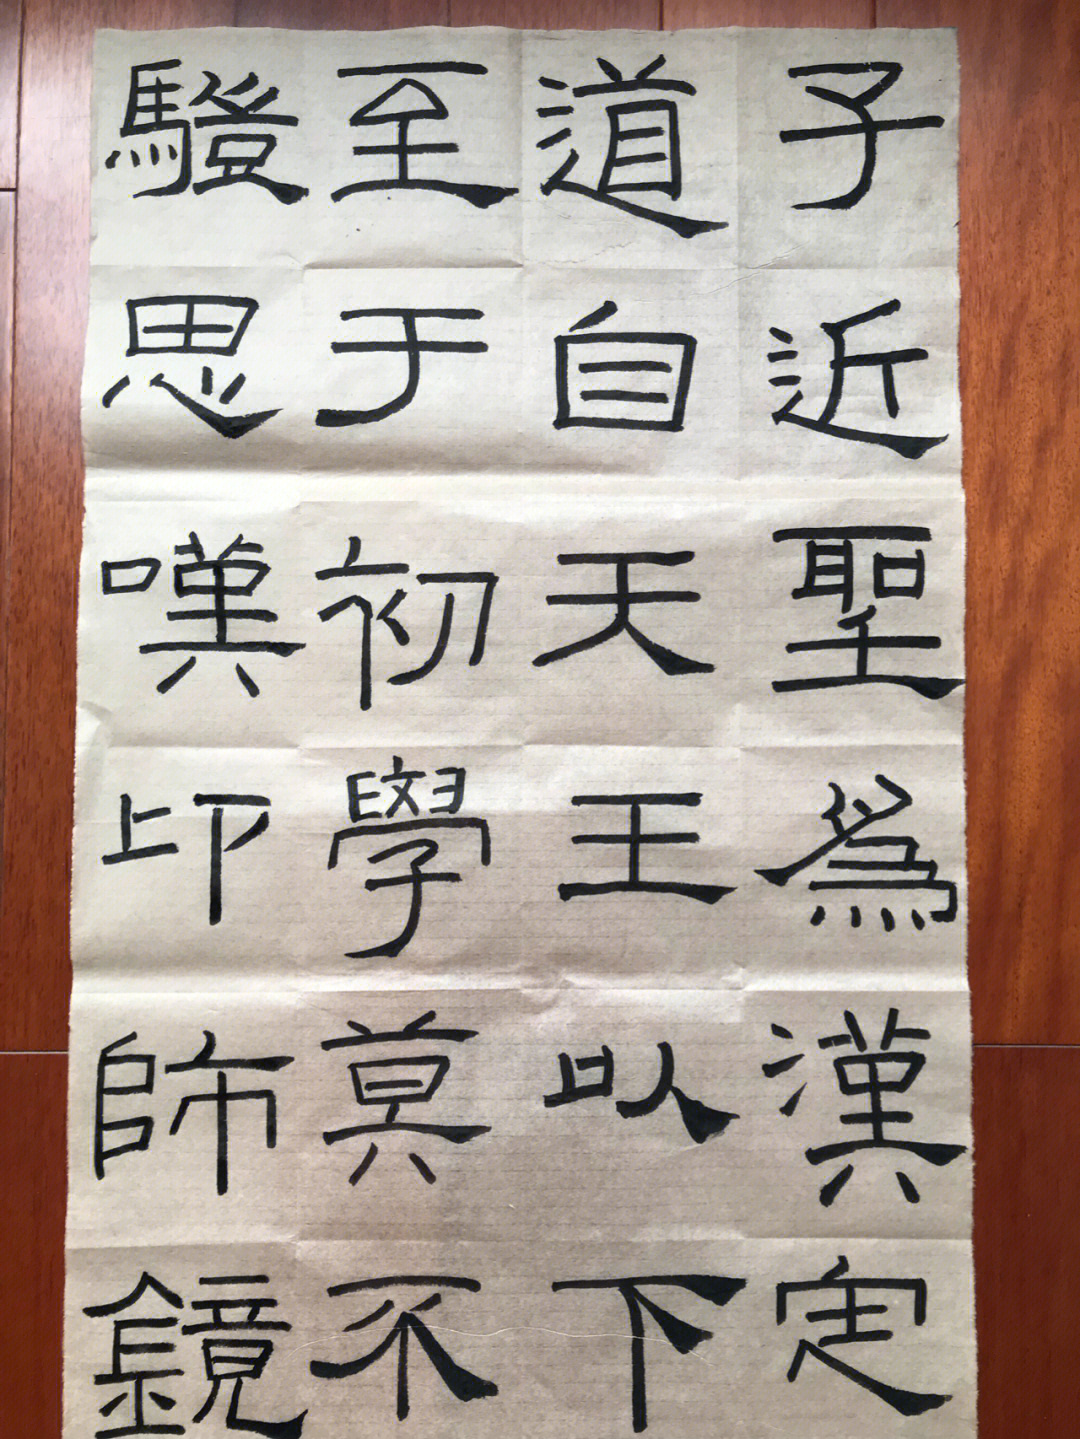 子近聖爲漢定
道自天王以下
至于初學莫不
驥思嘆卬師鏡